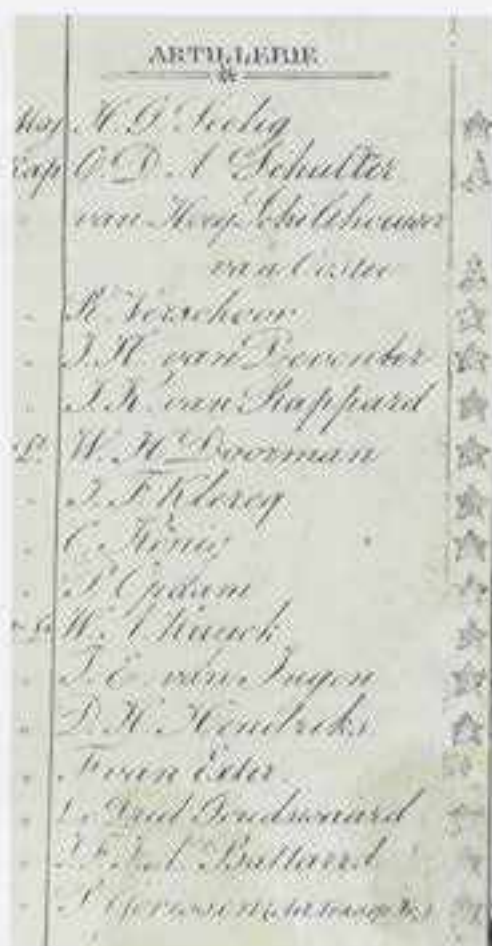 ARTILLERIE
Maj H. G. Seelig
Kap O. D. A Schulter
van Hoey Schilthouwer
van Oostee
R. Verschoor
J. H. van Deventer
J. K. van Rappard
Lt. W. H. Doorman
J. F. Klercq
C. König
P. Opdam
W. A Kuijck
J. E. van Ingen
D. H. Hendriks
F van Exter
L. Goudswaard
Battaerd